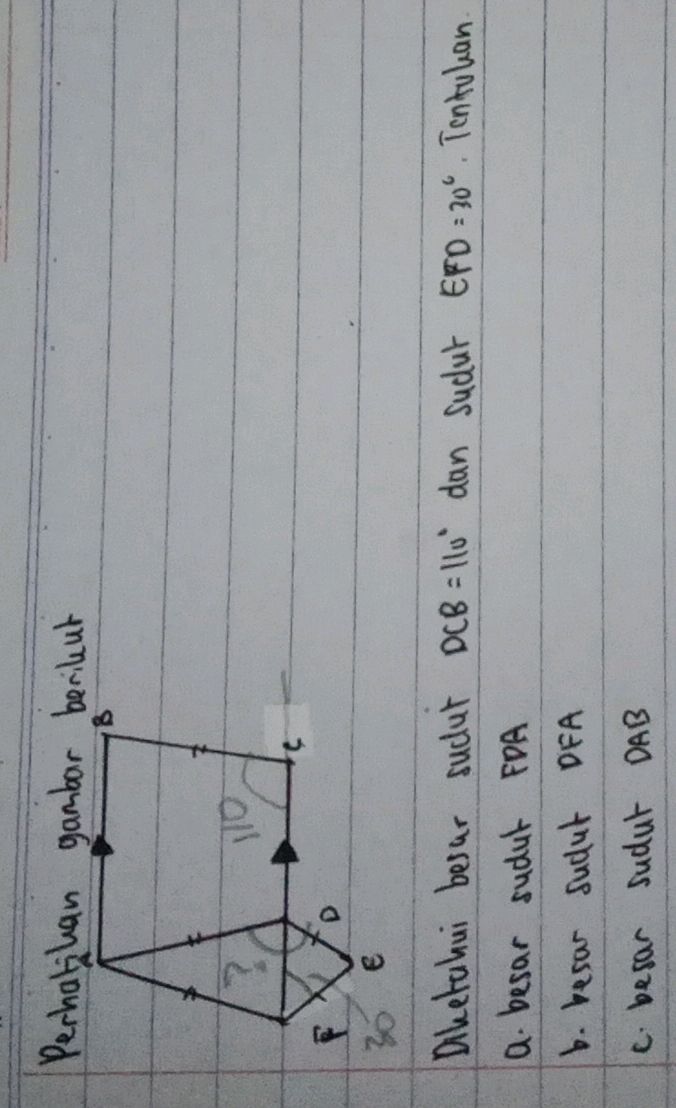 Perhatikan gambar berikut
A
B
110
C
?
D
F
E
30
Diketahui besar sudut DCB = 110° dan sudut EFD = 30°. Tentukan.
a. besar sudut FDA
b. besar sudut DFA
c. besar sudut DAB